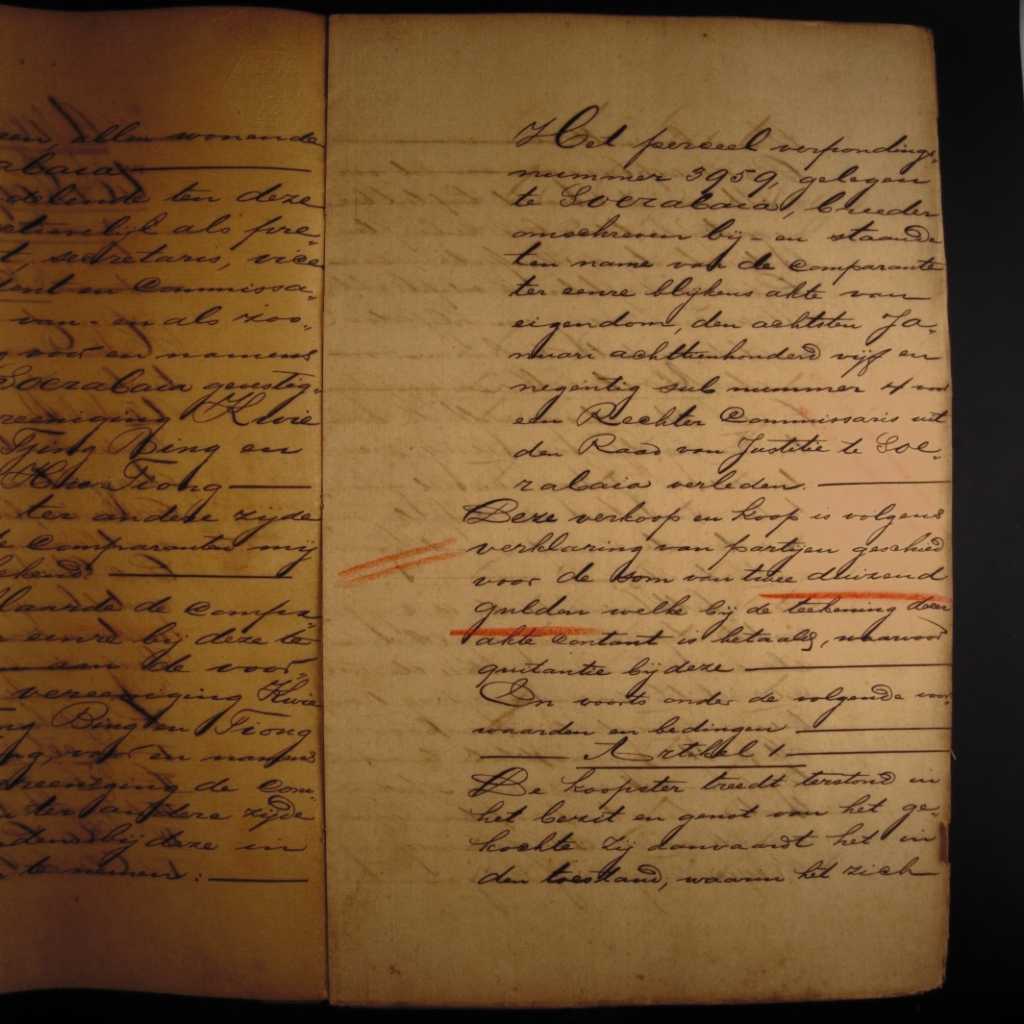 allen wonende
ten deze
als pre-
secretaris, vice
en Commissa-
van- en als zoo-
voor en namens
Soerabaia gevestig-
Kwie
Tjing Bing en
Tiong
ter andere zijde
comparanten mij
bekend.
de compa-
eenre bij deze te
aan de voor-
vereeniging Kwie
Bing en Tiong
voor en namens
vereeniging de com-
ter andere zijde
bij deze in
te nemen:
Het perceel verpondings-
nummer 3959, gelegen
te Soerabaia, breeder
omschreven bij- en staande
ten name van de comparante
ter eenre blijkens akte van
eigendom, den achtsten Ja-
nuari achttienhonderd vijf en
negentig sub nummer 4 voor
een Rechter Commissaris uit
den Raad van Justitie te Soe-
rabaia verleden.
Deze verkoop en koop is volgens
verklaring van partijen geschied
voor de som van twee duizend
gulden welke bij de teekening dezer
akte contant is betaald, waarvoor
quitantie bij deze
En voorts onder de volgende voor-
waarden en bedingen
Artikel 1.
De koopster treedt terstond in
het bezit en genot van het ge-
kochte zij aanvaardt het in
den toestand, waarin het zich